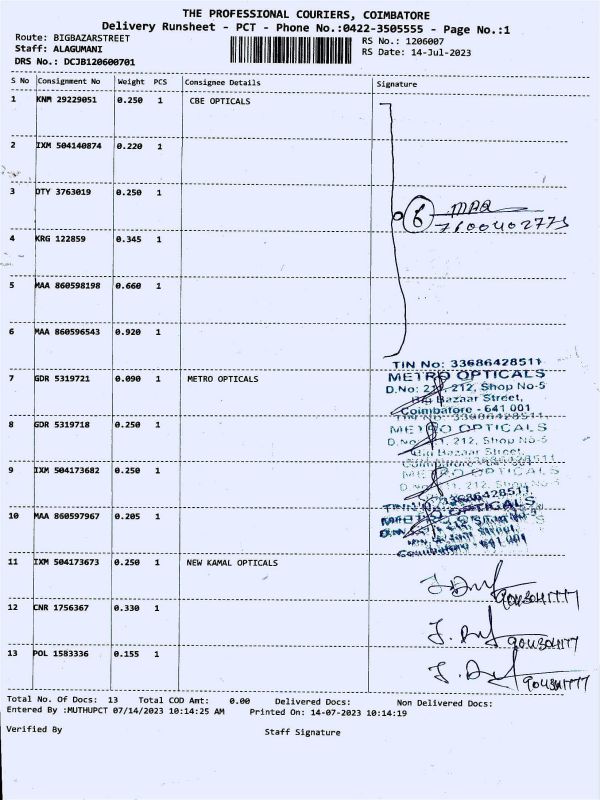 THE PROFESSIONAL COURIERS, COIMBATORE
Delivery Runsheet - PCT - Phone No.:0422-3505555 - Page No.:1
Route: BIGBAZARSTREET RS No.: 1206007
Staff: ALAGUMANI RS Date: 14-Jul-2023
DRS No.: DCJB120600701
S No Consignment No Weight PCS Consignee Details Signature
1 KNM 29229051 0.250 1 CBE OPTICALS
2 IXM 504140874 0.220 1
3 DTY 3763019 0.250 1
6
7600402773
4 KRG 122859 0.345 1
5 MAA 860598198 0.660 1
6 MAA 860596543 0.920 1
TIN No: 33686428511
7 GDR 5319721 0.090 1 METRO OPTICALS METRO OPTICALS
D.No: 212, Shop No-5
Big Bazaar Street,
Coimbatore - 641 001
8 GDR 5319718 0.250 1 METRO OPTICALS
D.No 212, Shop No-5
Big Bazaar Street,
9 IXM 504173682 0.250 1 METRO OPTICALS
212, Shop No-5
33686428511
10 MAA 860597967 0.205 1 METRO OPTICALS
Coimbatore - 641 001
11 IXM 504173673 0.250 1 NEW KAMAL OPTICALS
12 CNR 1756367 0.330 1
13 POL 1583336 0.155 1
Total No. Of Docs: 13 Total COD Amt: 0.00 Delivered Docs: Non Delivered Docs:
Entered By :MUTHUPCT 07/14/2023 10:14:25 AM Printed On: 14-07-2023 10:14:19
Verified By Staff Signature